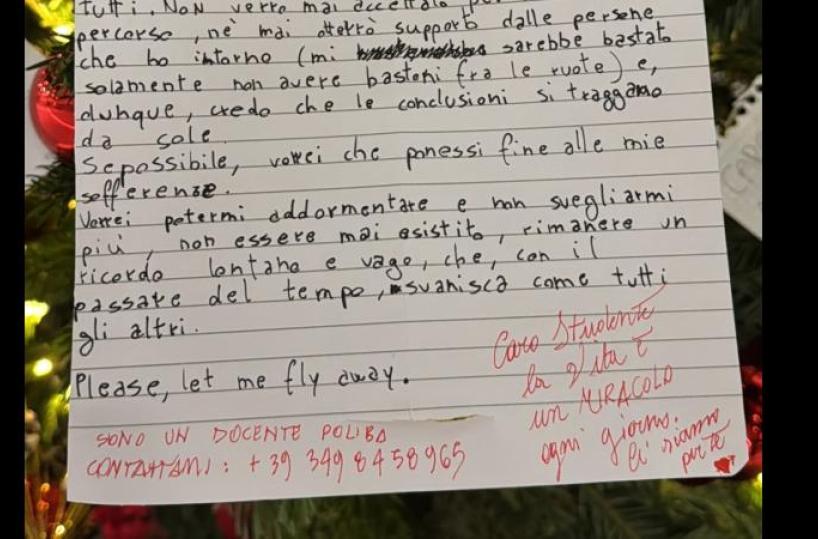 tutti. Non verrò mai accettato
percorso, né mai otterrò supporto dalle persone
che ho intorno (mi sarebbe bastato
solamente non avere bastoni fra le ruote) e,
dunque, credo che le conclusioni si traggano
da sole.
Se possibile, vorrei che ponessi fine alle mie
sofferenze.
Vorrei potermi addormentare e non svegliarmi
più, non essere mai esistito, rimanere un
ricordo lontano e vago, che, con il
passare del tempo, svanisca come tutti
gli altri.
Please, let me fly away.
Caro Studente
la Vita è
un MIRACOLO
ogni giorno.
Ci siamo
per te
SONO UN DOCENTE POLIBA
CONTATTAMI: +39 349 8458965